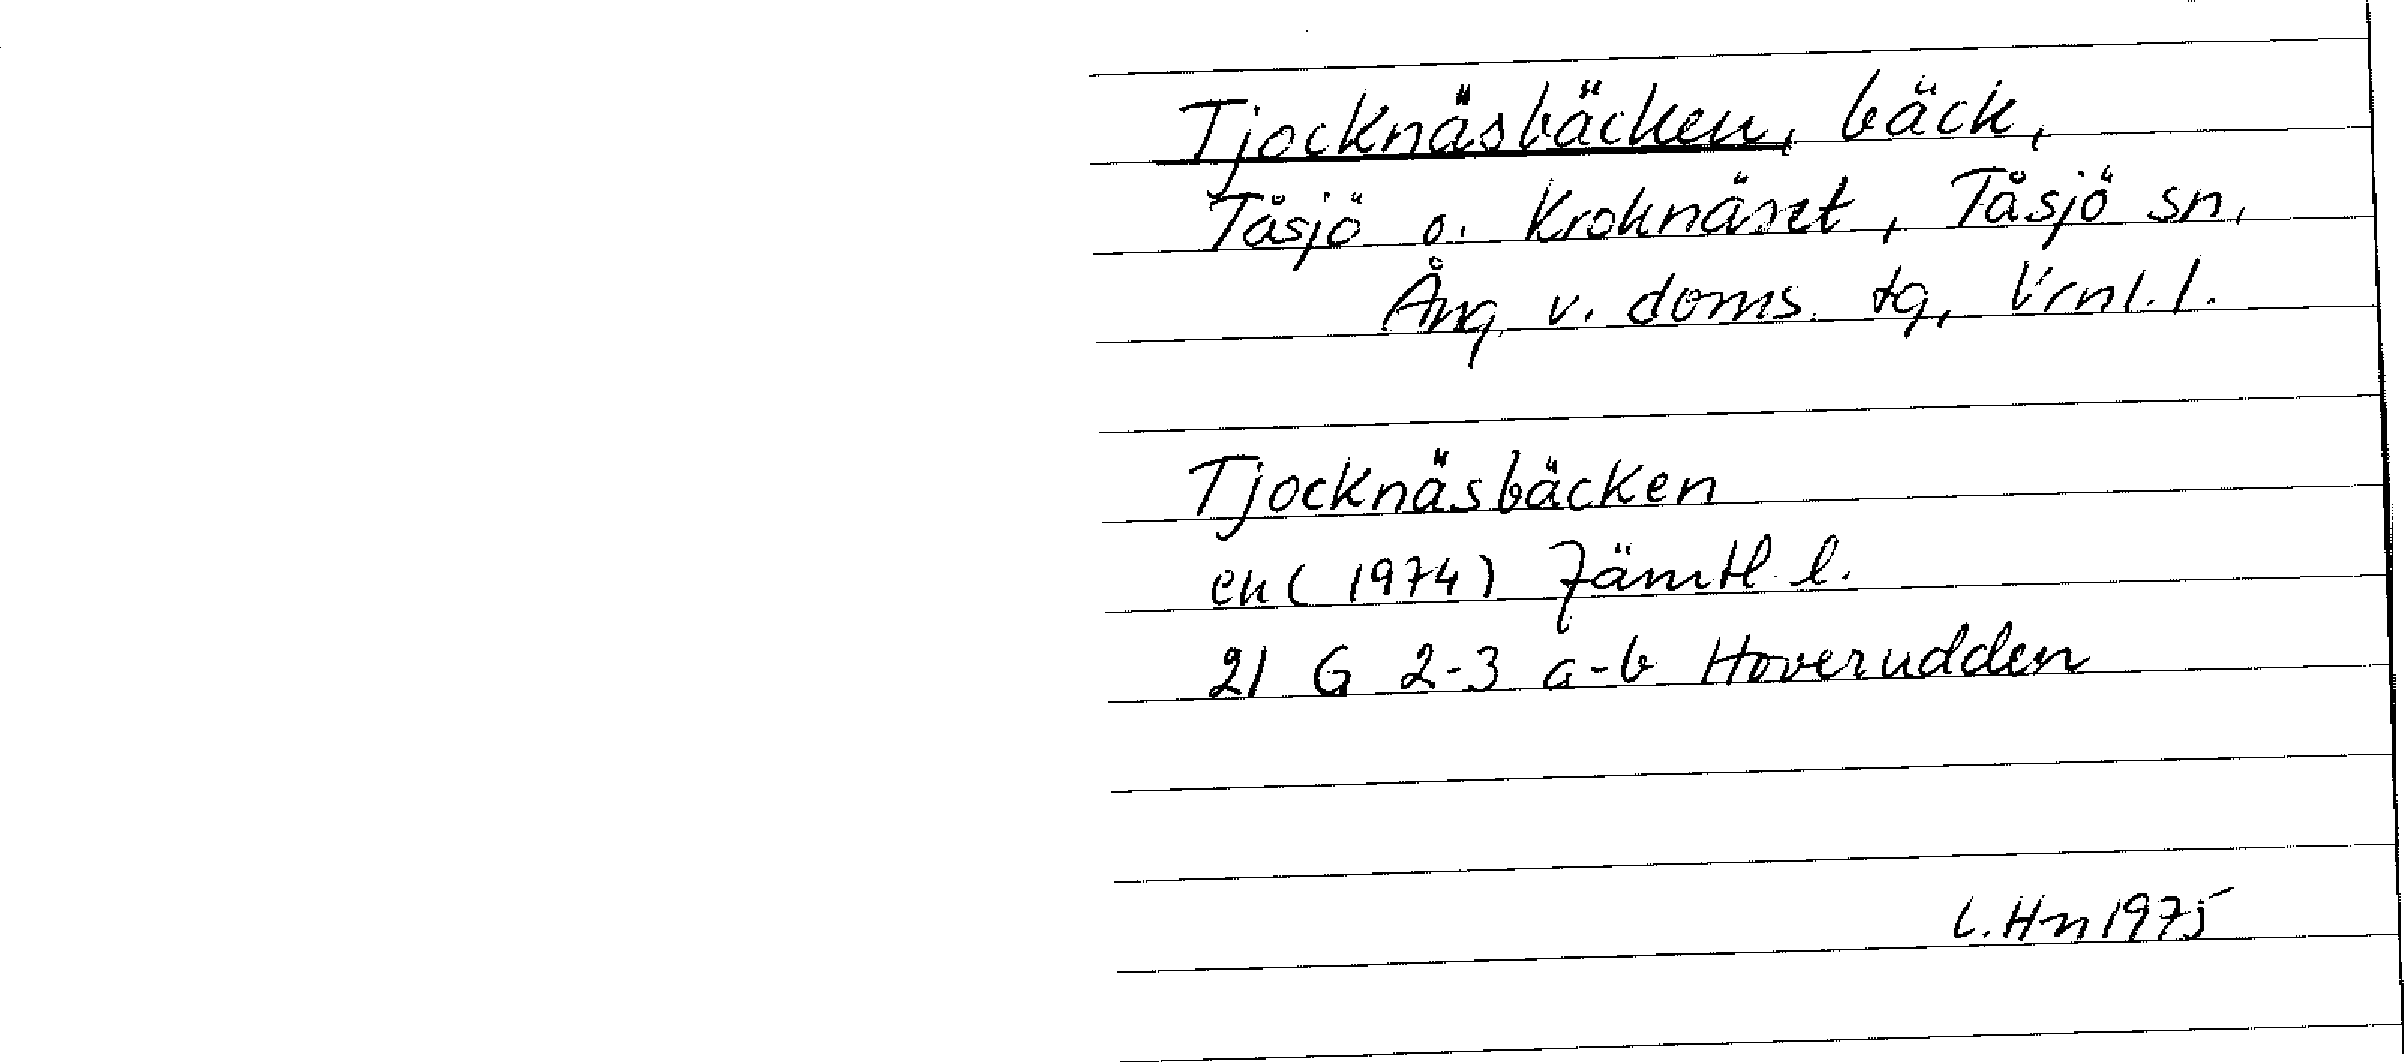 Tjocknäsbäcken, bäck,
Tåsjö o. Kroknäset, Tåsjö sn,
Ång. v. doms. tg, Vrnl. l.
Tjocknäsbäcken
ek (1974) Jämtl. l.
21 G 2-3 a-b Hoverudden
L. Hn 1975